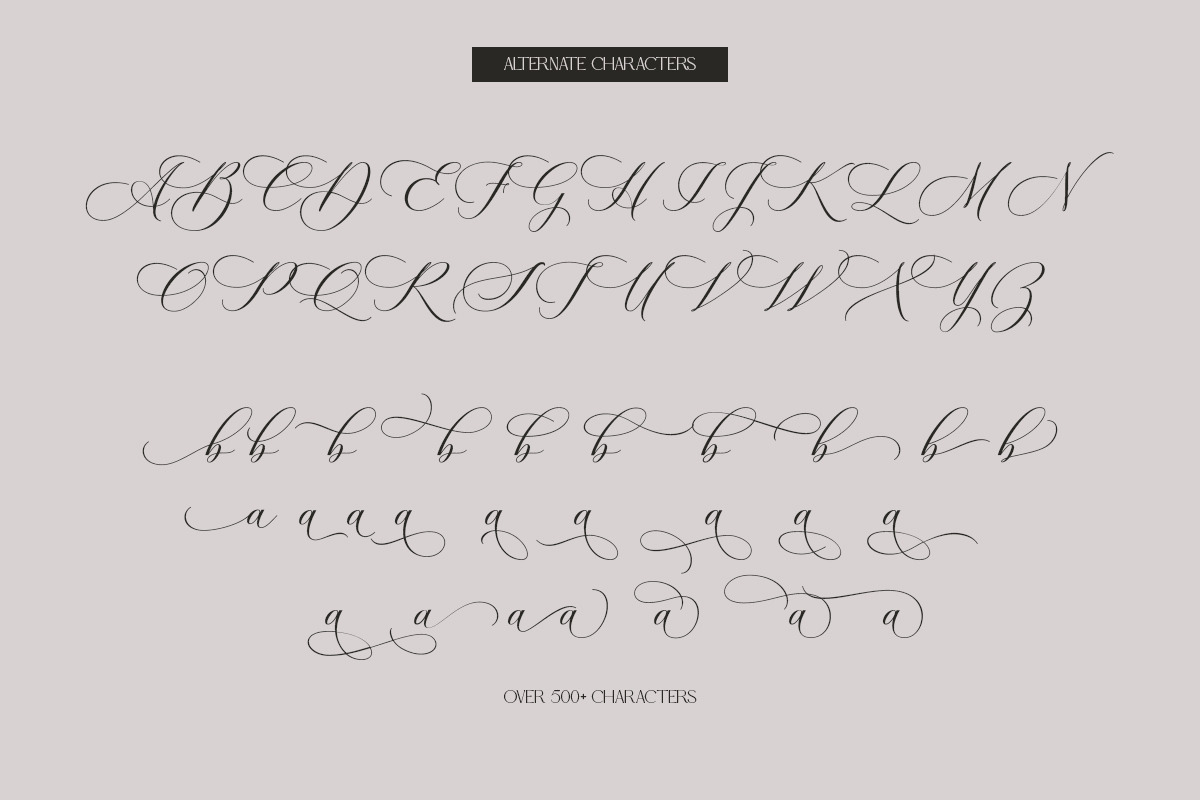 ALTERNATE CHARACTERS
ABCDEFGHIJKLMN
OPQRSTUVWXYZ
b b b b b b b b b b
a a a a a a a a a
a a a a a a a
OVER 500+ CHARACTERS